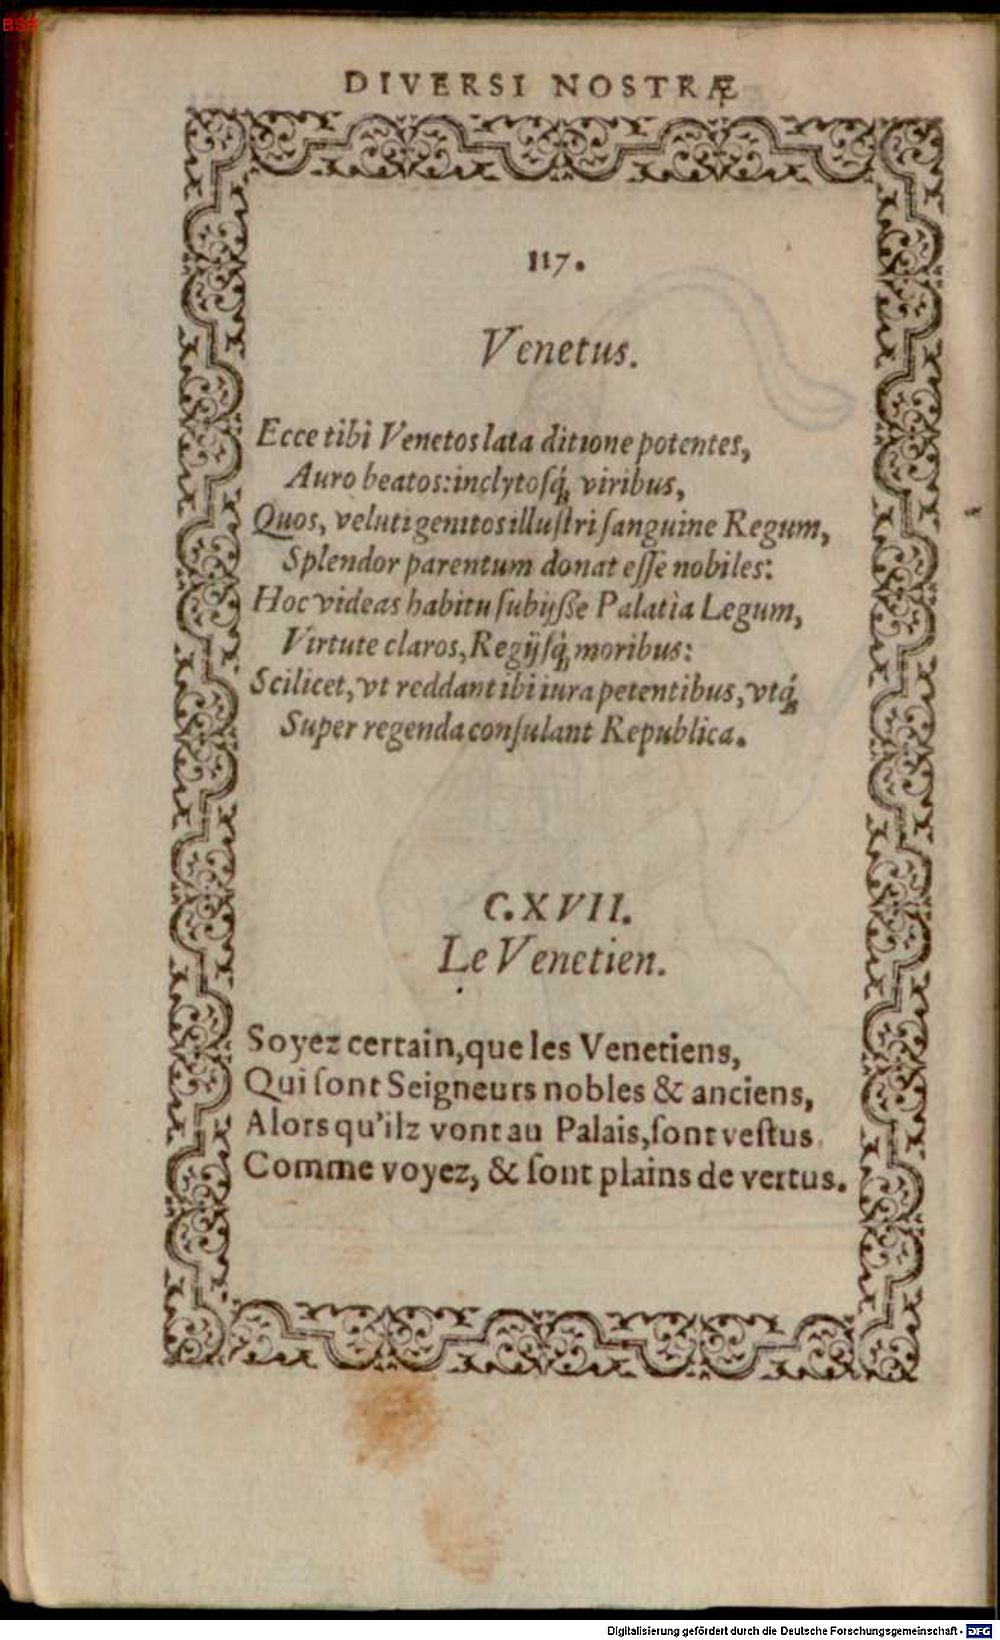 BSB
DIVERSI NOSTRÆ
117.
Venetus.
Ecce tibi Venetos lata ditione potentes,
Auro beatos: inclytoſq́; viribus,
Quos, veluti genitos illuſtri ſanguine Regum,
Splendor parentum donat eſſe nobiles:
Hoc videas habitu ſubijſſe Palatia Legum,
Virtute claros, Regijſq́; moribus:
Scilicet, vt reddant ibi iura petentibus, vtq́;
Super regenda conſulant Republica.
C.XVII.
Le Venetien.
Soyez certain, que les Venetiens,
Qui ſont Seigneurs nobles & anciens,
Alors qu'ilz vont au Palais, ſont veſtus
Comme voyez, & ſont plains de vertus.
Digitalisierung gefördert durch die Deutsche Forschungsgemeinschaft - DFG